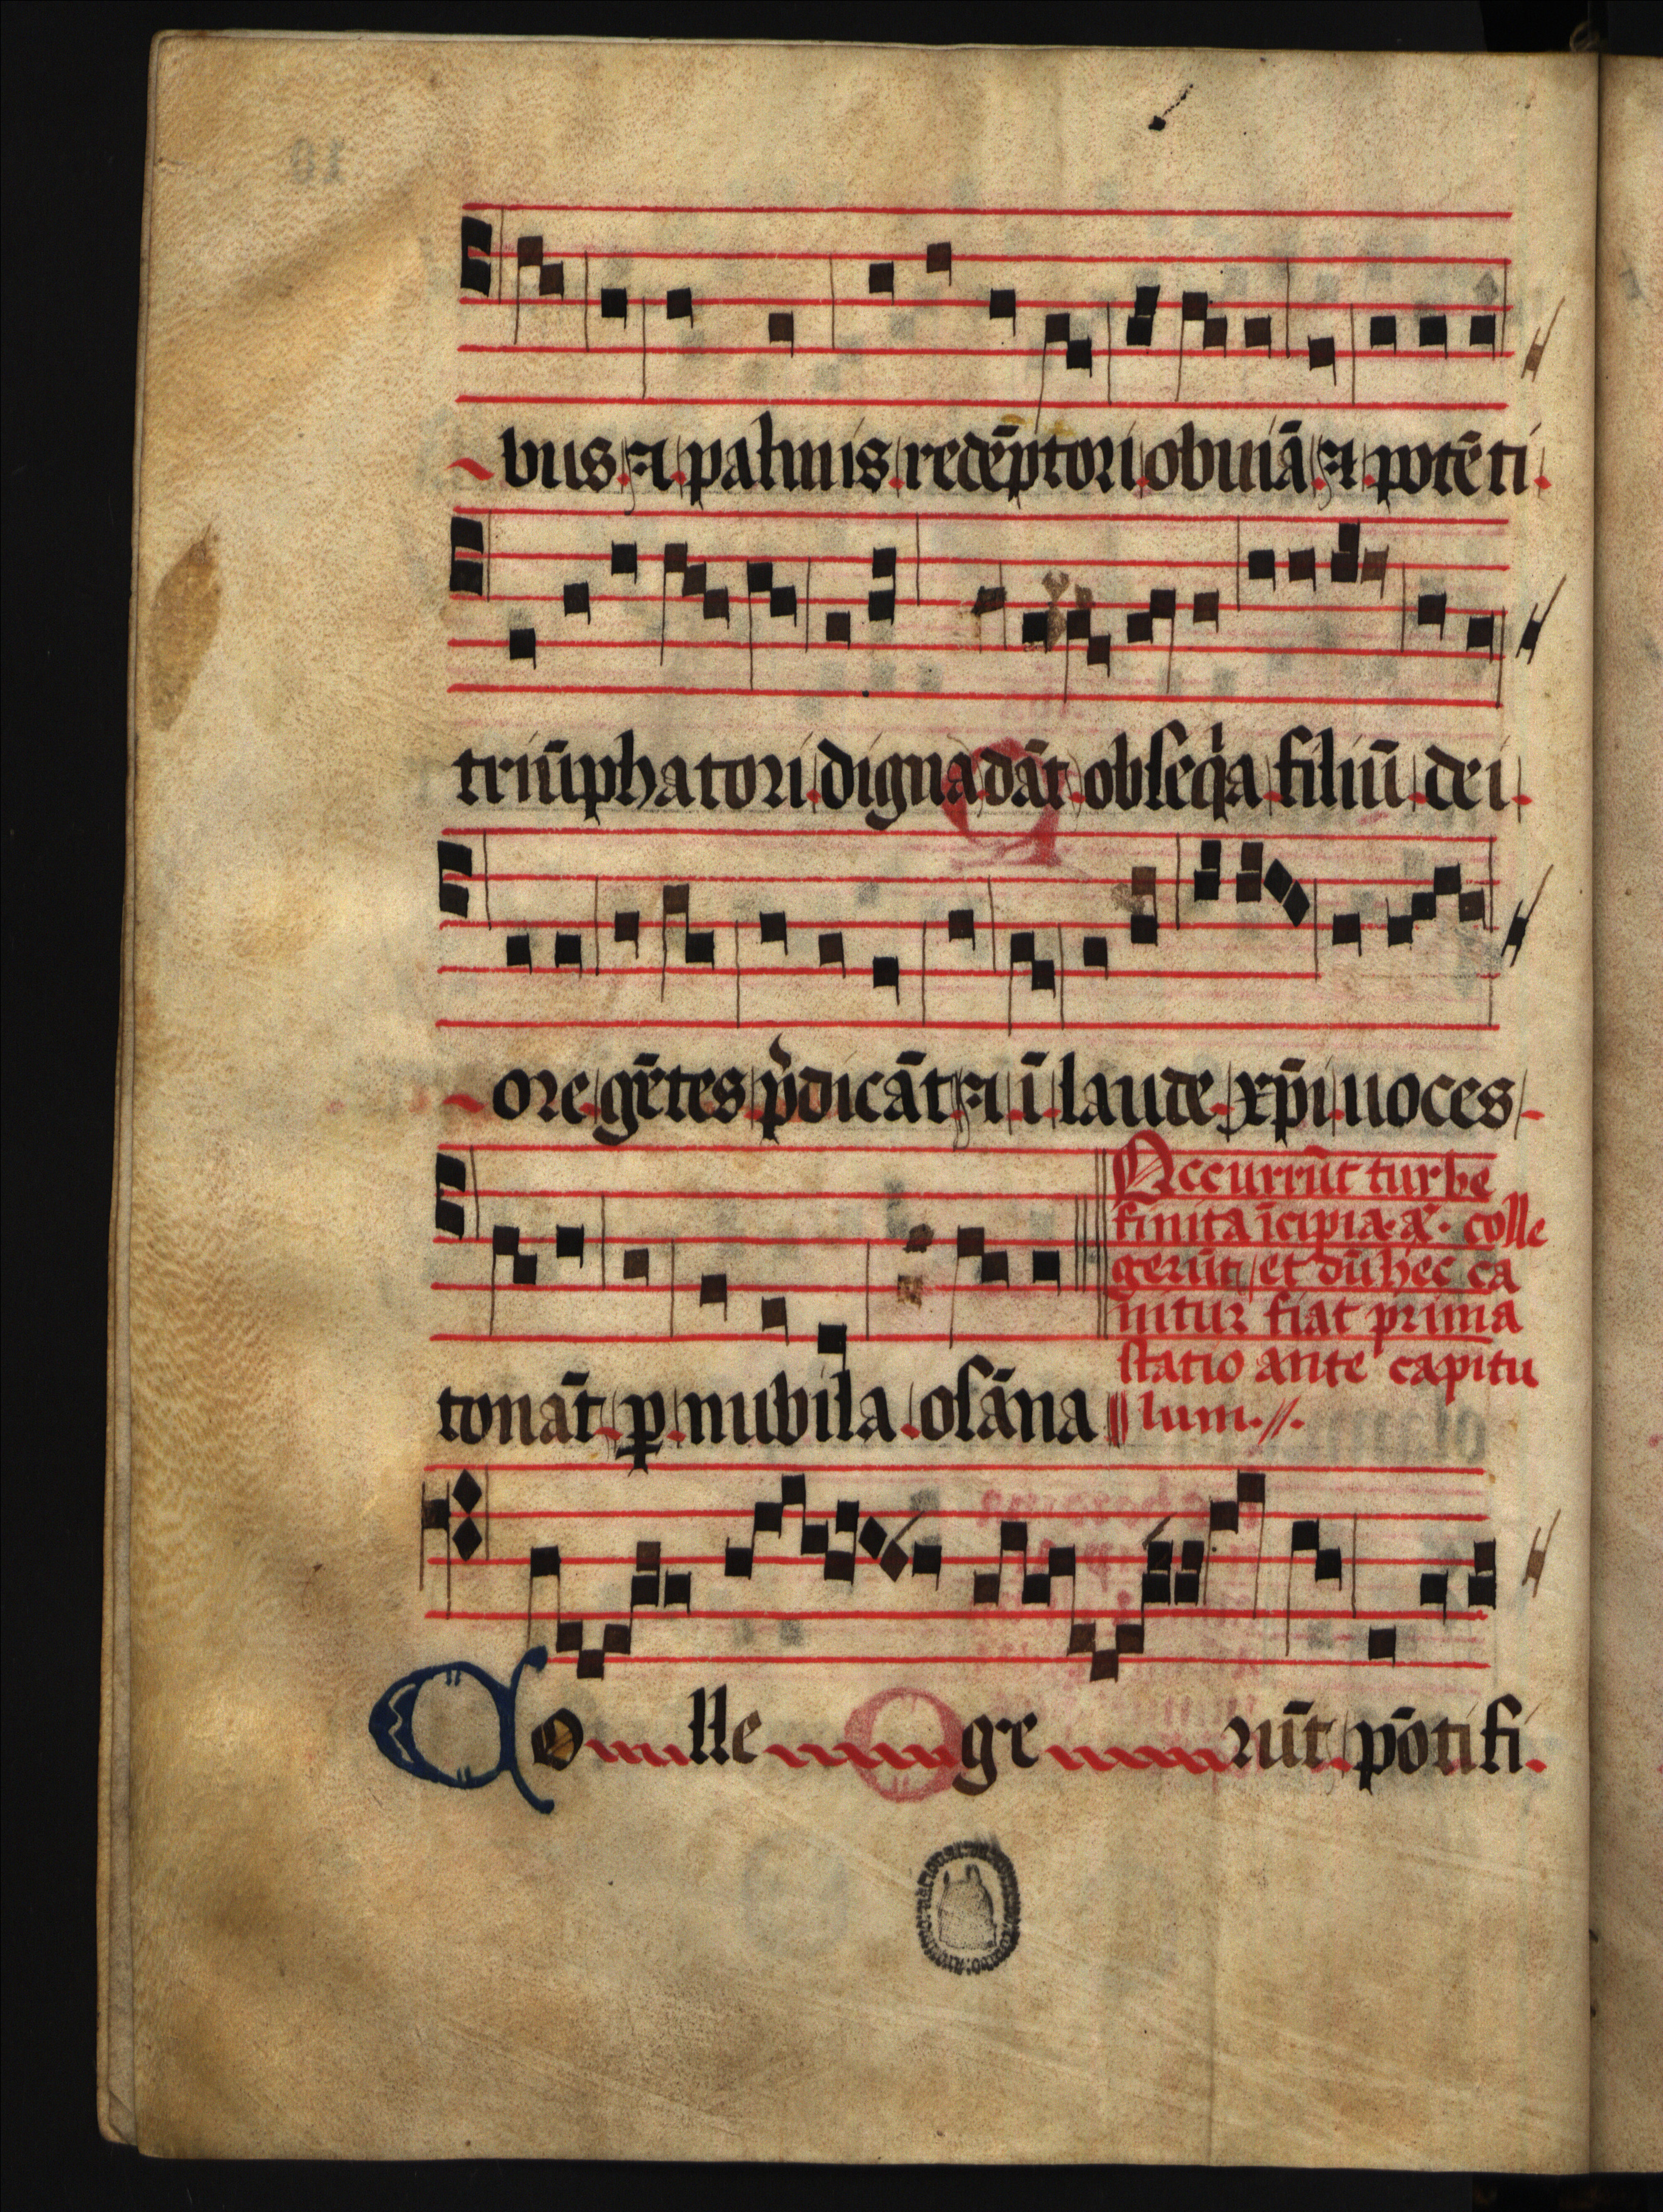 bus ⁊ palmis redēptori obuiā ⁊ potēti
triūphatori digna dāt obseq̇a filiū dei
ore gētes p̄dicāt ⁊ ī laude xp̄i uoces
tonāt ꝑ nubila osāna
Occurrūt turbe
finita īcipia. a᷎. colle
gerūt, et dū hec ca
nitur fiat prima
statio ante capitu
lum.
Co lle ge rūt pōtifi